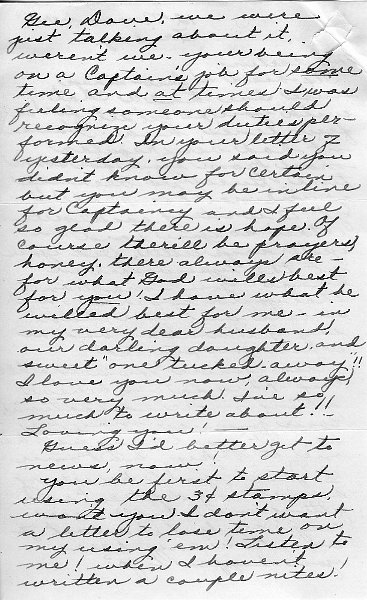 Gee, Dave, we were
just talking about it,
weren't we - your being
on a Captain's job for some
time and at times I was
feeling someone should
recognize your duties per-
formed. In your letter of
yesterday, you said you
didn't know for certain
but you may be in line
for Captaincy and I feel
so glad there is hope. Of
course there'll be prayers,
honey, there always are -
for what God wills best
for you! I have what he
willed best for me - in
my very dear husband,
our darling daughter and
sweet "one tucked away"!!
I love you now, always,
so very much. I've so
much to write about!!
Loving you!
Guess I'd better get to
news, now!
You be first to start
using the 3¢ stamps,
won't you. I don't want
a letter to lose time on
my using 'em! Listen to
me! when I haven't
written a couple nites!